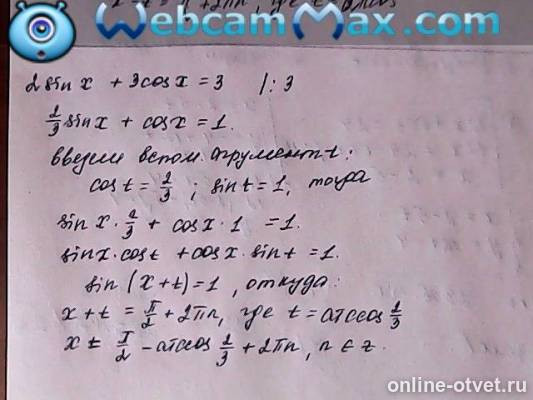 WebcamMax.com
2 sin x + 3cos x = 3 /: 3
2/3 sin x + cos x = 1.
введем вспом. аргумент t:
cos t = 2/3 ; sin t = 1, тогда
sin x · 2/3 + cos x · 1 = 1.
sin x · cos t + cos x · sin t = 1.
sin (x + t) = 1, откуда:
x + t = π/2 + 2πn, где t = arccos 2/3
x = π/2 - arccos 2/3 + 2πn, n ∈ z.
online-otvet.ru